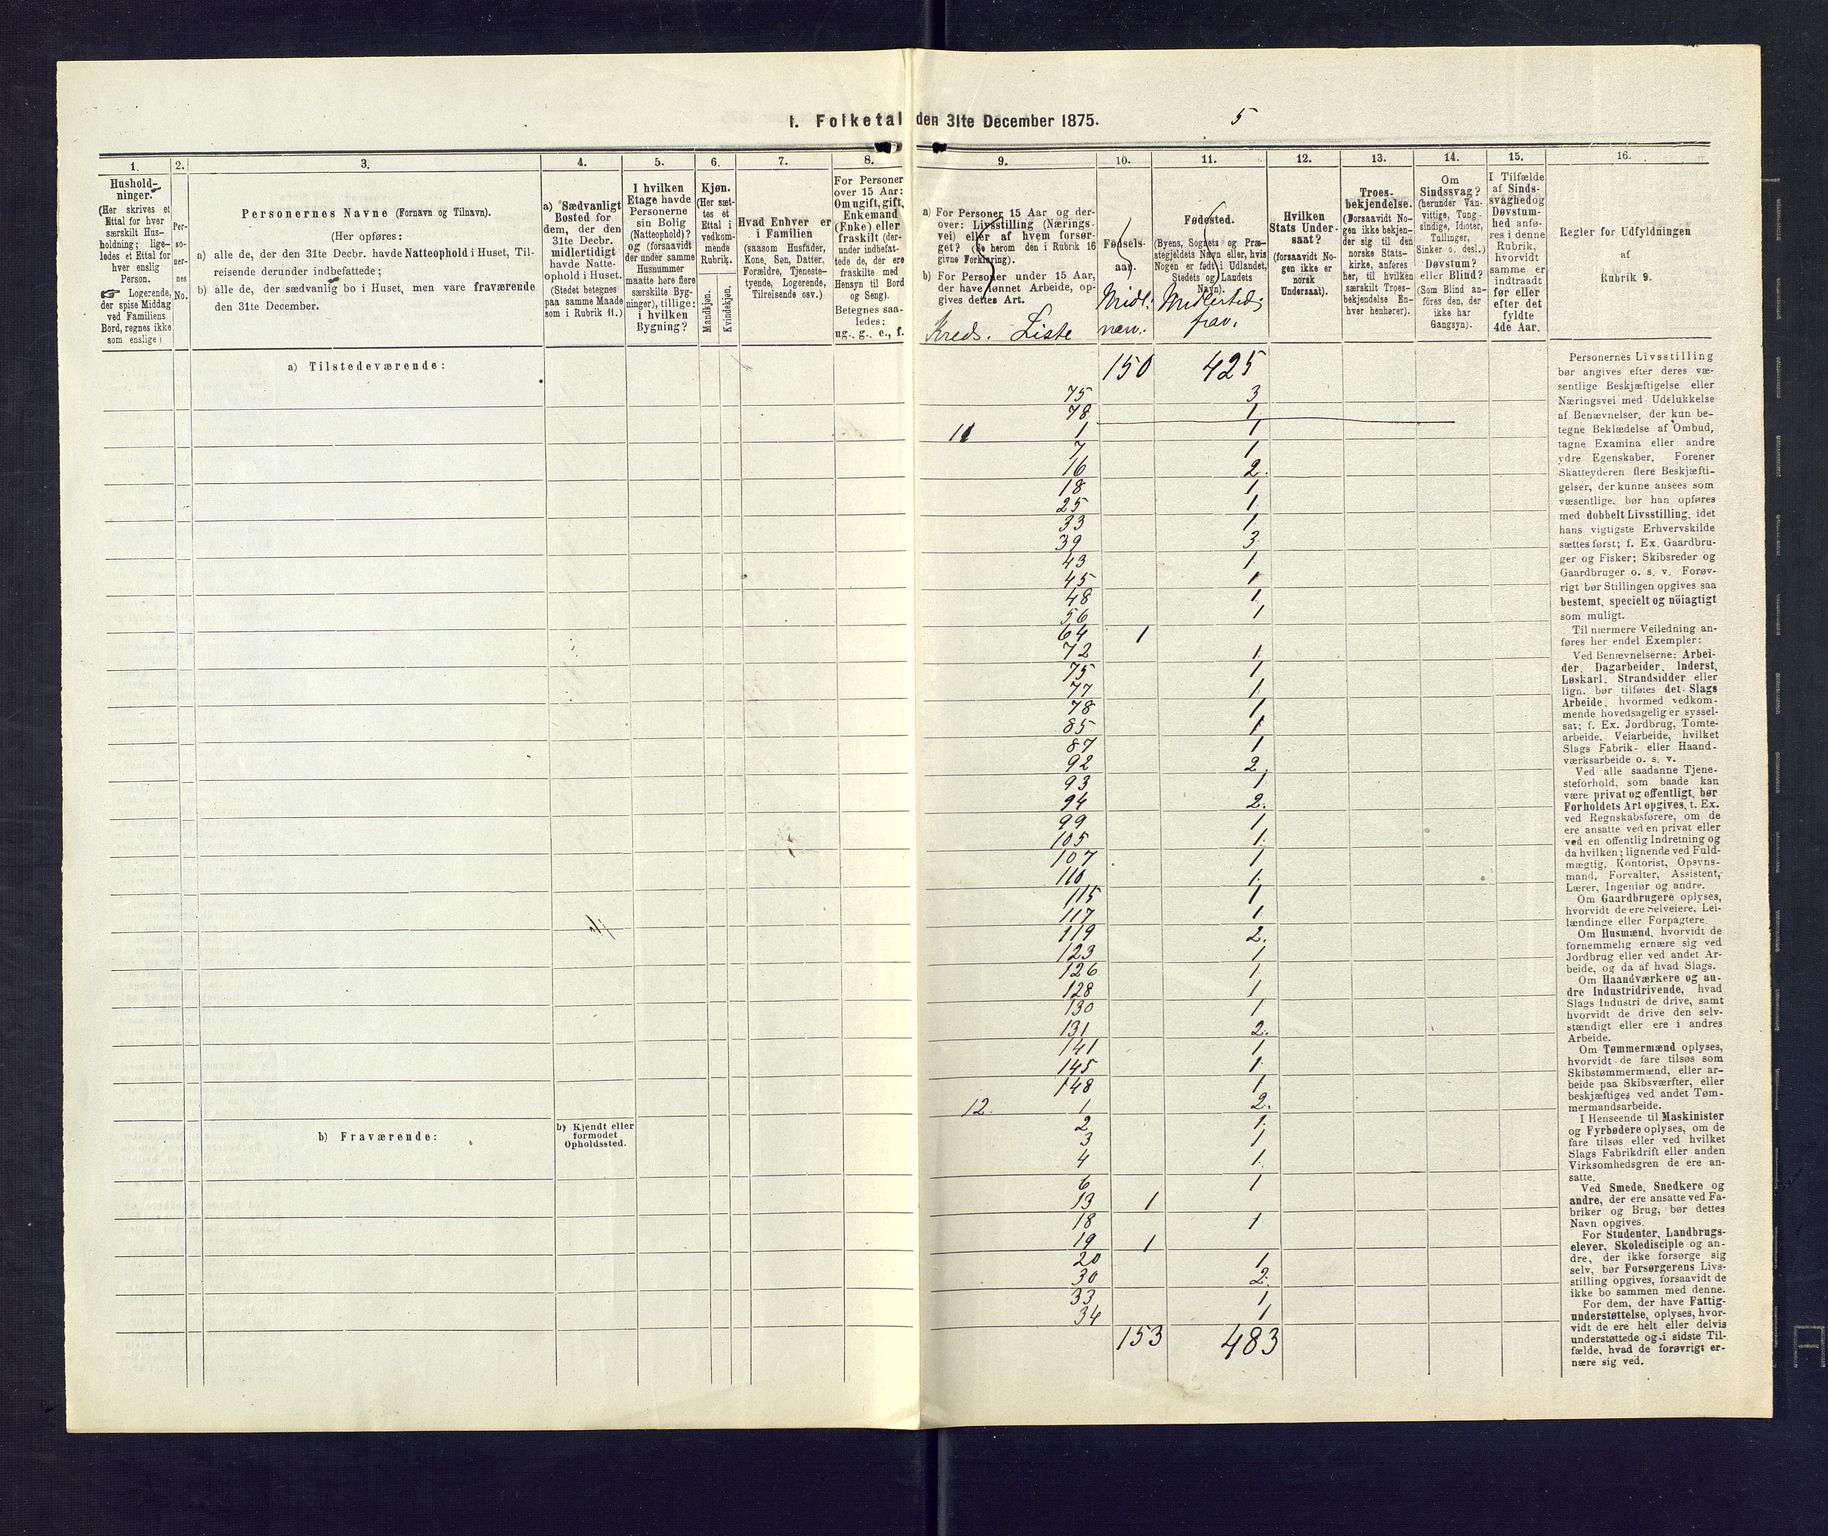 I. Folketal den 31te December 1875.
5
1. 2. 3. 4. 5. 6. 7. 8. 9. 10. 11. 12. 13. 14. 15. 16.
Hushold-
ninger.
(Her skrives et
Ettal for hver
særskilt Hus-
holdning; lige-
ledes et Ettal for
hver enslig
Person.
☞ Logerende,
der spise Middag
ved Familiens
Bord, regnes ikke
som enslige)
Per-
so-
ner-
nes
No.
Personernes Navne (Fornavn og Tilnavn).
(Her opføres:
a) alle de, der den 31te Decbr. havde Natteophold i Huset, Til-
reisende derunder indbefattede;
b) alle de, der sædvanlig bo i Huset, men vare fraværende
den 31te December.
a) Sædvanligt
Bosted for
dem, der den
31te Decbr.
midlertidigt
havde Natte-
ophold i Huset.
(Stedet betegnes
paa samme Maade
som i Rubrik 11.)
I hvilken
Etage havde
Personerne
sin Bolig
(Natteophold)?
og (forsaavidt
der under samme
Husnummer
maatte høre flere
særskilte Byg-
ninger), tillige:
i hvilken
Bygning?
Kjøn.
(Her sæt-
tes et
Ettal i
vedkom-
mende
Rubrik.
Mandkjøn.
Kvindekjøn.
Hvad Enhver er
i Familien
(saasom Husfader,
Kone, Søn, Datter,
Forældre, Tjeneste-
tyende, Logerende,
Tilreisende osv.)
For Personer
over 15 Aar:
Om ugift, gift,
Enkemand
(Enke) eller
fraskilt (der-
under indbefat-
tede de, der ere
fraskilte med
Hensyn til Bord
og Seng).
Betegnes saa-
ledes:
ug., g., e., f.
a) For Personer 15 Aar og der-
over: Livsstilling (Nærings-
vei) eller af hvem forsør-
get? (Se herom den i Rubrik 16
givne Forklaring).
b) For Personer under 15 Aar,
der have lønnet Arbeide, op-
gives dettes Art.
Kreds. Liste
Fødsels-
aar.
Midl.
nærv.
Fødested.
(Byens, Sognets og Præ-
stegjeldets Navn eller, hvis
Nogen er født i Udlandet,
Stedets og Landets
Navn).
Midlertid.
frav.
Hvilken
Stats Under-
saat?
(forsaavidt No-
gen ikke er
norsk
Undersaat).
Troes-
bekjendelse.
(Forsaavidt No-
gen ikke bekjen-
der sig til den
norske Stats-
kirke, anføres
her, til hvilken
særskilt Troes-
bekjendelse En-
hver henhører).
Om
Sindssvag?
(herunder Van-
vittige, Tung-
sindige, Idioter,
Tullinger,
Sinker o. desl.)
Døvstum?
eller Blind?
(Som Blind an-
føres den, der
ikke har
Gangsyn).
I Tilfælde
af Sinds-
svaghedog
Døvstum-
hed anfø-
res i denne
Rubrik,
hvorvidt
samme er
indtraadt
før eller
efter det
fyldte
4de Aar.
Regler for Udfyldningen
af
Rubrik 9.
a) Tilstedeværende:
150 425
75 3
78 1
11 1 1
7 1
16 2.
18 1
25 1.
33 1
39 3
43 1.
45 1
48 1
56 1
64 1
72 1
75 1
77 1
78 1
85 1
87 1
92 2.
93 1
94 2.
99 1
105 1.
107 1
110 1.
115 1
117 1
119 2.
123 1
126 1
128 1
130 1
131 2.
141 1
145 1.
148 1
12. 1 2.
2 1.
3 1
4 1.
6 1
13 1
18 1
19 1
20 1.
30 2.
33 1
34 1
153 483
b) Fraværende:
b) Kjendt eller
formodet
Opholdssted.
Personernes Livsstilling
bør angives efter deres væ-
sentlige Beskjæftigelse eller
Næringsvei med Udelukkelse
af Benævnelser, der kun be-
tegne Beklædelse af Ombud,
tagne Examina eller andre
ydre Egenskaber. Forener
Skatteyderen flere Beskjæfti-
gelser, der kunne ansees som
væsentlige, bør han opføres
med dobbelt Livsstilling, idet
hans vigtigste Erhvervskilde
sættes først; f. Ex. Gaardbru-
ger og Fisker; Skibsreder og
Gaardbruger o. s. v. Forøv-
rigt bør Stillingen opgives saa
bestemt, specielt og nöiagtigt
som muligt.
Til nærmere Veiledning an-
føres her endel Exempler:
Ved Benævnelserne: Arbei-
der, Dagarbeider, Inderst,
Løskarl, Strandsidder eller
lign. bør tilføies det Slags
Arbeide, hvormed vedkom-
mende hovedsagelig er syssel-
sat; f. Ex. Jordbrug, Tomte-
arbeide, Veiarbeide, hvilket
Slags Fabrik- eller Haand-
værksarbeide o. s. v.
Ved alle saadanne Tjene-
steforhold, som baade kan
være privat og offentligt, bør
Forholdets Art opgives, t. Ex.
ved Regnskabsførere, om de
ere ansatte ved en privat eller
ved en offentlig Indretning og
da hvilken; lignende ved Fuld-
mægtig, Kontorist, Opsyns-
mand, Forvalter, Assistent,
Lærer, Ingeniør og andre.
Om Gaardbrugere oplyses,
hvorvidt de ere Selveiere, Lei-
lændinge eller Forpagtere.
Om Husmænd, hvorvidt de
fornemmelig ernære sig ved
Jordbrug eller ved andet Ar-
beide, og da af hvad Slags.
Om Haandværkere og an-
dre Industridrivende, hvad
Slags Industri de drive, samt
hvorvidt de drive den selv-
stændigt eller ere i andres
Arbeide.
Om Tømmermænd oplyses,
hvorvidt de fare tilsøs som
Skibstømmermænd, eller ar-
beide paa Skibsværfter, eller
beskjæftiges ved andet Tøm-
mermandsarbeide.
I Henseende til Maskinister
og Fyrbødere oplyses, om de
fare tilsøs eller ved hvilket
Slags Fabrikdrift eller anden
Virksomhedsgren de ere an-
satte.
Ved Smede, Snedkere og
andre, der ere ansatte ved Fa-
briker og Brug, bør dettes
Navn opgives.
For Studenter, Landbrugs-
elever, Skoledisciple og an-
dre, der ikke forsørge sig
selv, bør Forsørgerens Livs-
stilling opgives, forsaavidt de
ikke bo sammen med denne.
For dem, der have Fattig-
understøttelse, oplyses, hvor-
vidt de ere helt eller delvis
understøttede og i sidste Til-
fælde, hvad de forøvrigt er-
nære sig ved.